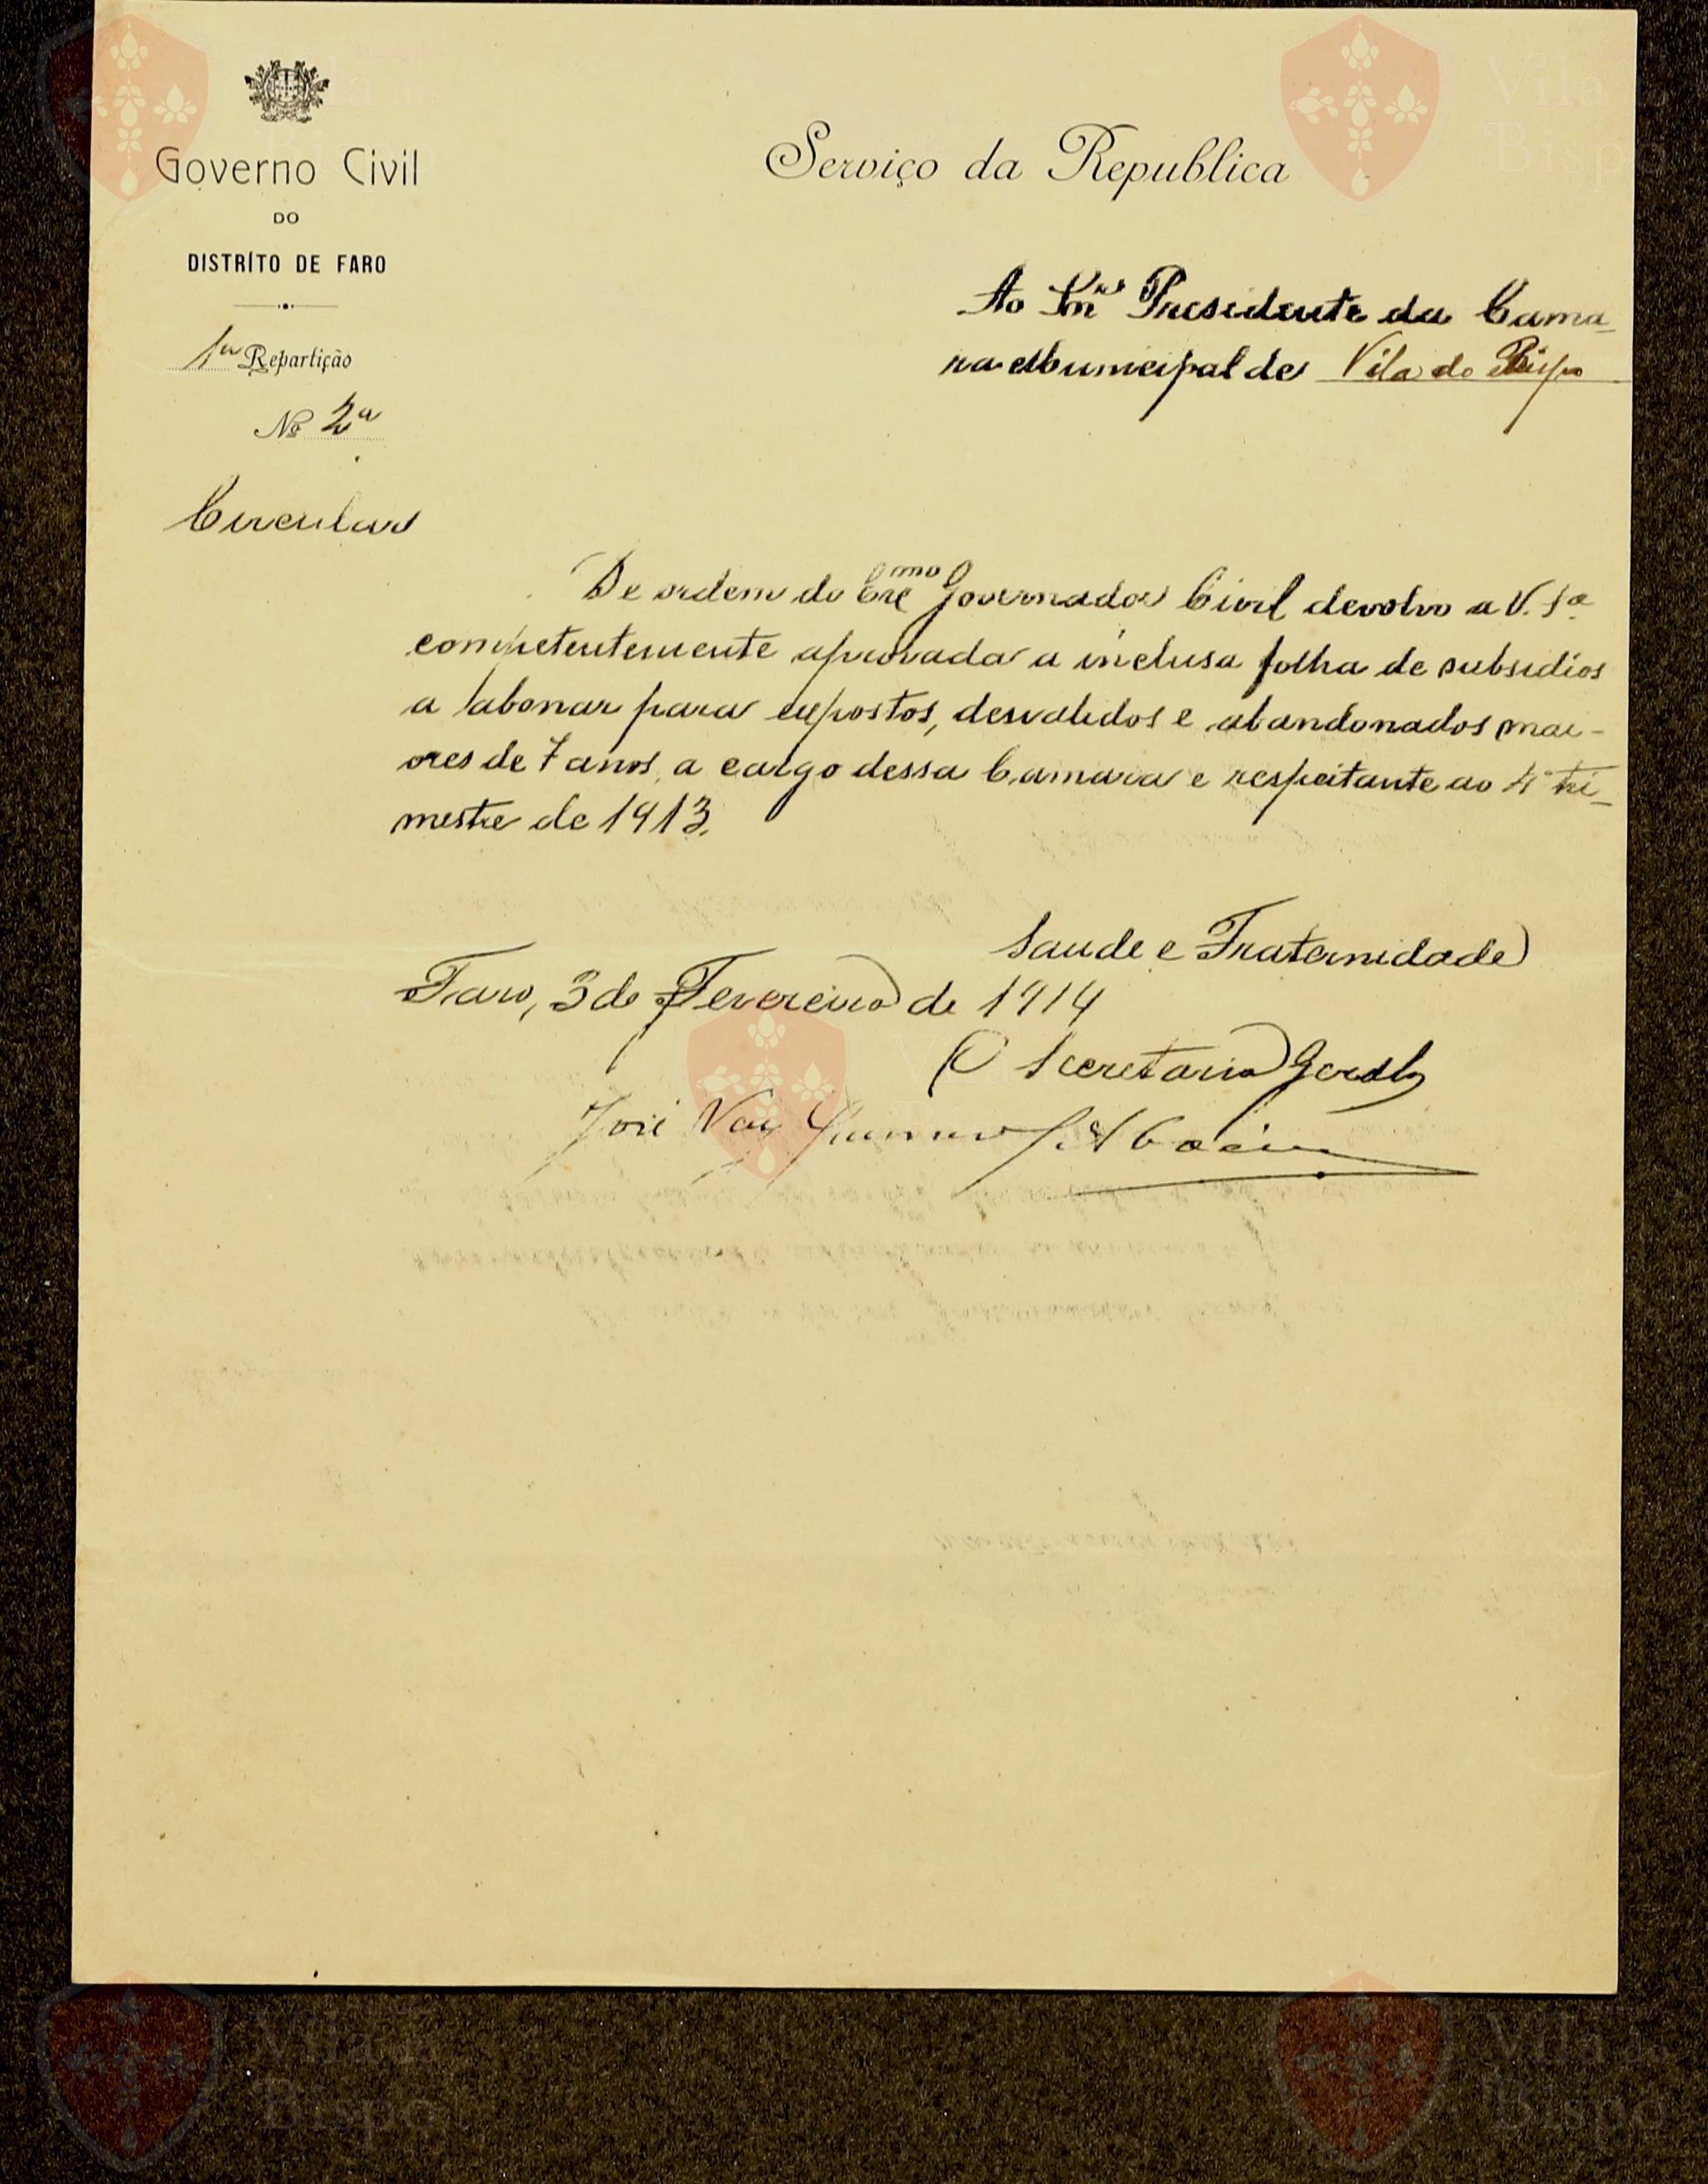 Governo Civil
DO
DISTRÍTO DE FARO
1ª Repartição
Nº 2ª
Circular
Serviço da Republica
Ao Snr. Presidente da Cama-
ra Municipal de Vila do Bispo
De ordem do Exmo Governador Civil devolvo a V. Sª
competentemente aprovada a inclusa folha de subsidios
a abonar para expostos, desvalidos e abandonados mai-
ores de 7 anos, a cargo dessa Camara e respeitante ao 4º tri-
mestre de 1913.
Saude e Fraternidade
Faro, 3 de Fevereiro de 1914
O Secretario Geral
José Vaz
Vila do
Bispo
Vila do
Bispo
Vila do
Bispo